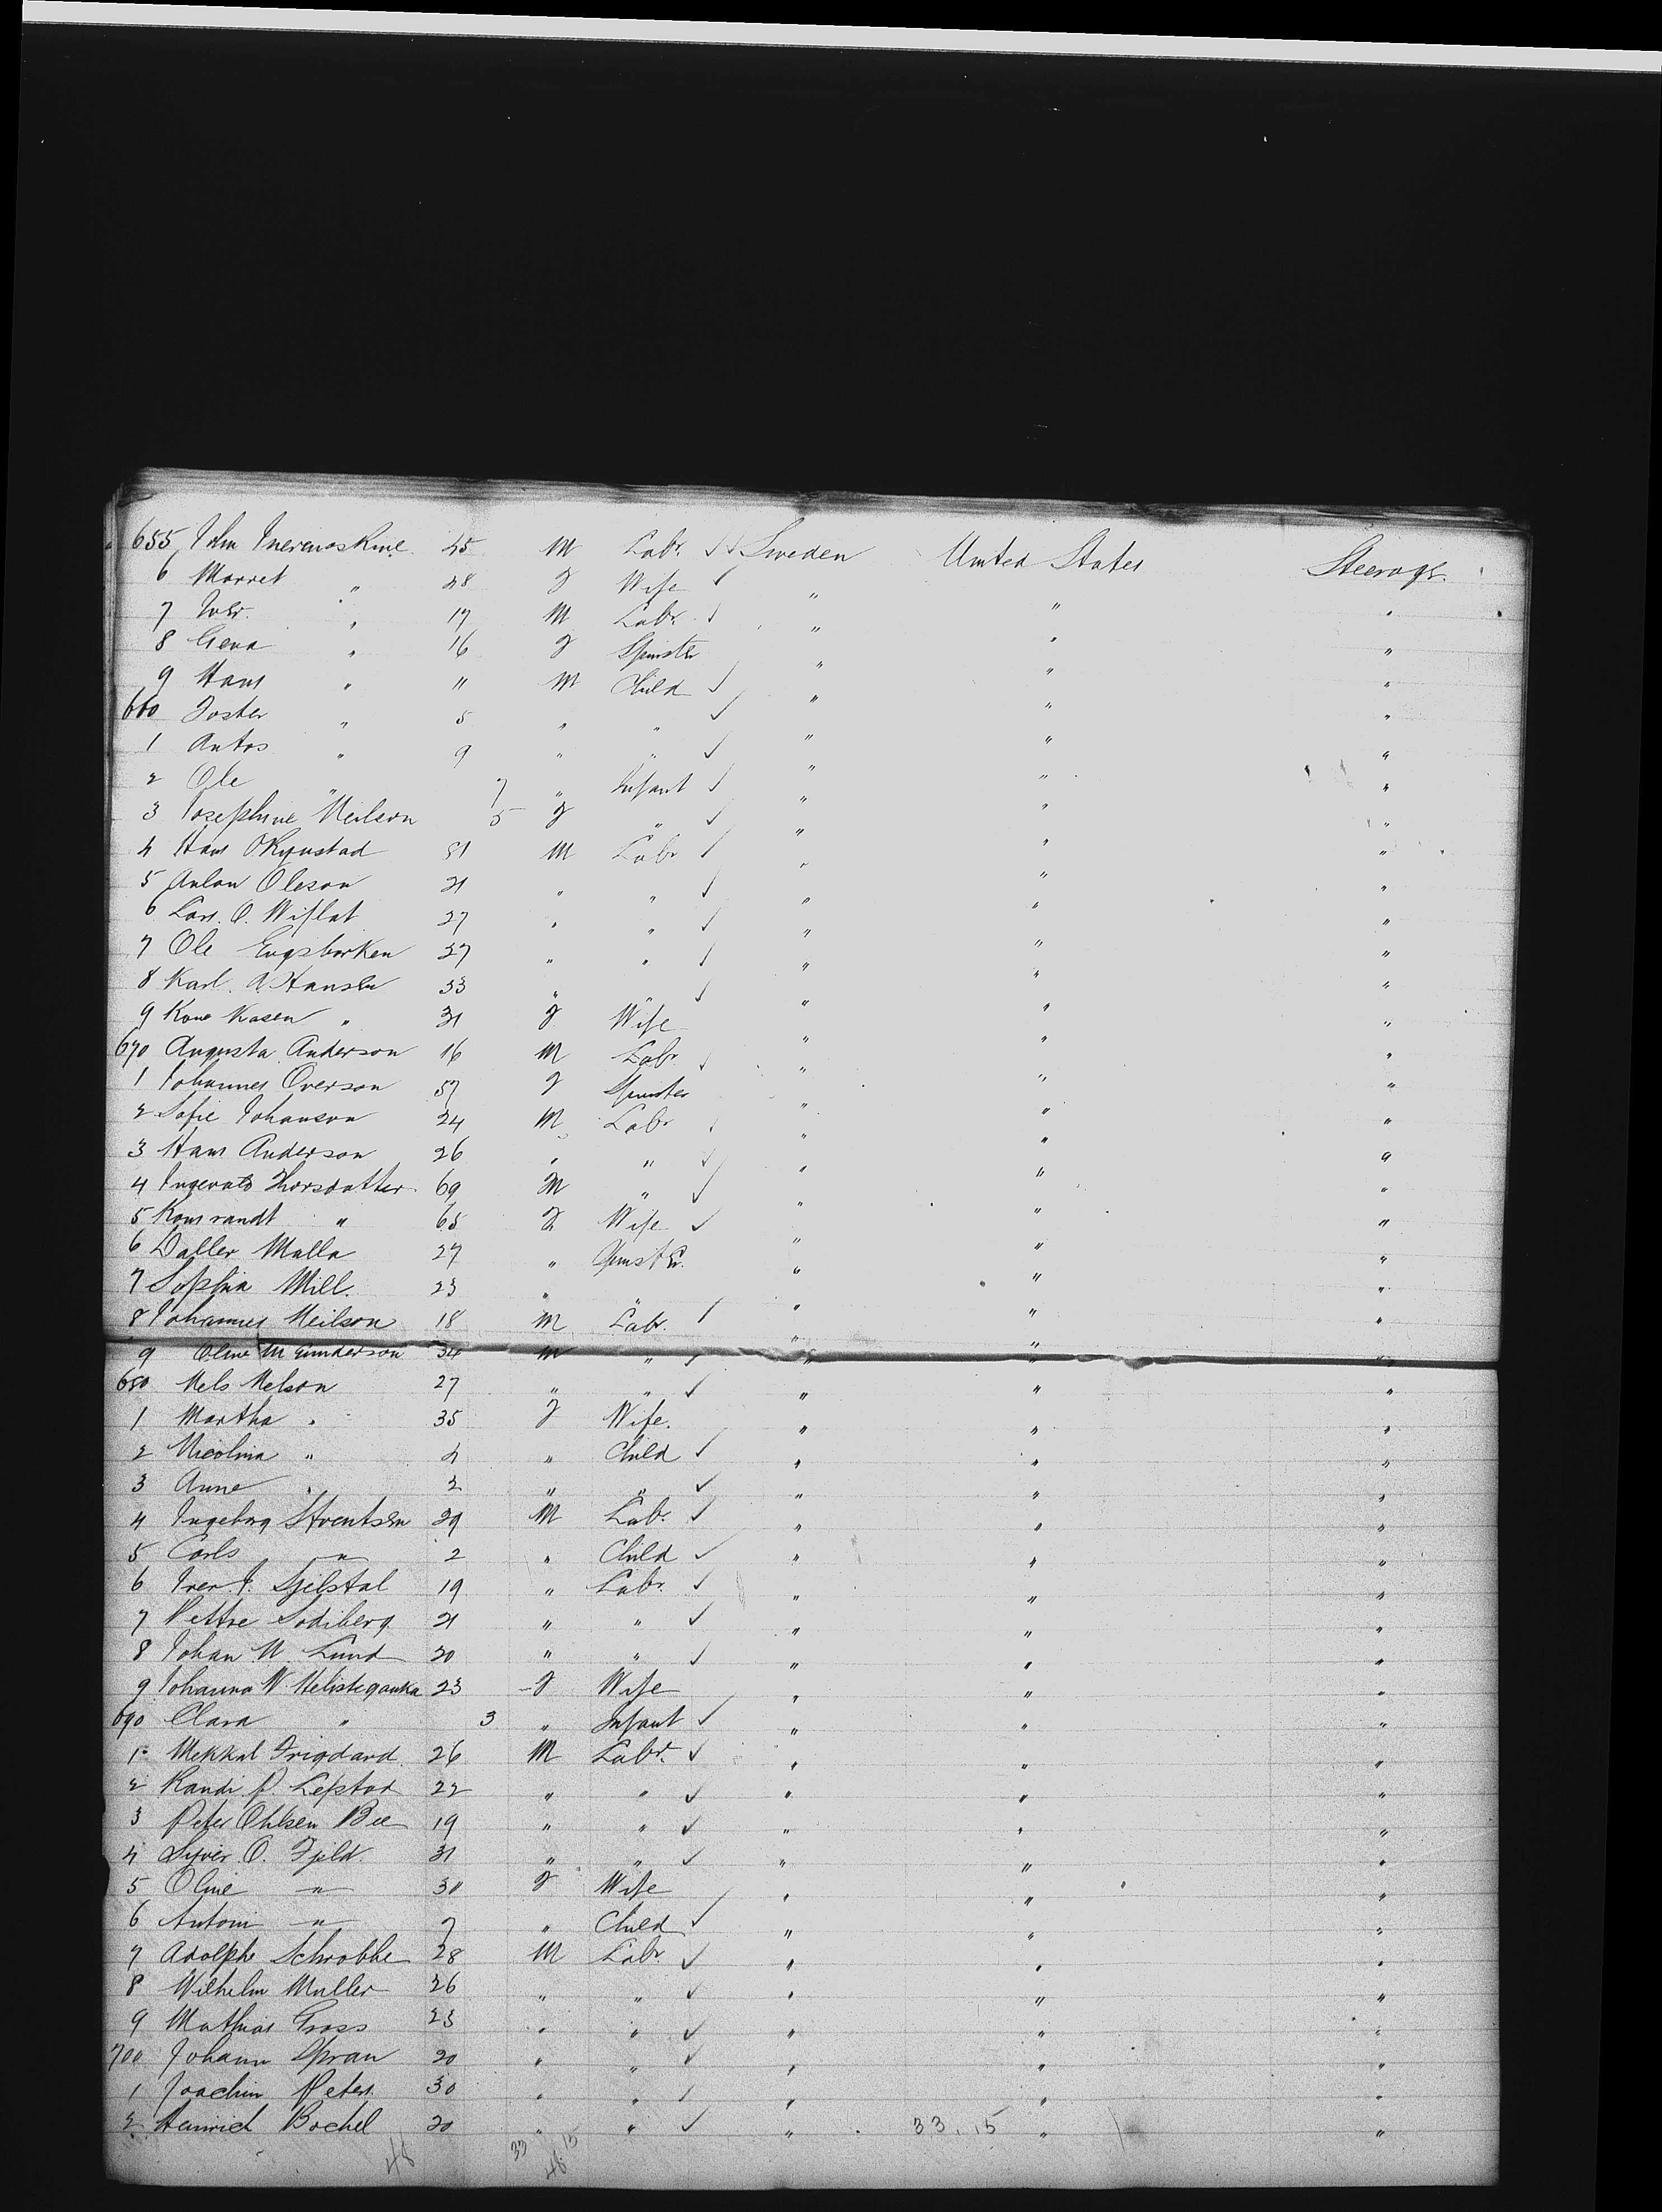 655 John Inermoskine 45 M Labr. Sweden United States Steerage
6 Marret " 48 F Wife " " "
7 Iver. " 17 M Labr. " " "
8 Gena " 16 F Spinster " " "
9 Hans " 11 M Child " " "
660 Foster " 5 " " " " "
1 Antos " 9 " " " " "
2 Ole " 7 " Infant " " "
3 Josephine Neilson 5 F " " " "
4 Hans Okynstad 51 M Labr " " "
5 Anton Oleson 21 " " " " "
6 Lars. O. Wiflat 27 " " " " "
7 Ole Engsbarken 37 " " " " "
8 Karl. A. Hansen 33 " " " " "
9 Kone Kasen " 31 F Wife " " "
670 Augusta Anderson 16 M Labr " " "
1 Johannes Overson 57 F Spinster " " "
2 Sofie Johanson 24 M Labr " " "
3 Hans Anderson 26 " " " " "
4 Ingevald Thorsdatter 69 M " " " "
5 Konsrandt " 65 F Wife " " "
6 Daller Malla 27 " Spinster. " " "
7 Sophia Mill. 23 " " " " "
8 Johannes Neilson 18 M Labr. " " "
9 Oline M Gunderson 34 M " " " "
680 Nels Nelson 27 " " " " "
1 Martha " 35 F Wife. " " "
2 Nicolina " 4 " Child " " "
3 Anne " 2 " " " " "
4 Ingeborg Stventsen 29 M Labr. " " "
5 Carls " 2 " Child " " "
6 Iver J. Sjelstal 19 " Labr. " " "
7 Pettre Sodiberg 21 " " " " "
8 Johan N. Lund 20 " " " " "
9 Johanna W Helisteganka 23 F Wife " " "
690 Clara " 3 " Infant " " "
1 Mekkal Frigdard 26 M Labr. " " "
2 Randi P. Lepstad 22 " " " " "
3 Peter Ohlsen Bee 19 " " " " "
4 Syver O. Fjeld. 31 " " " " "
5 Oline " 30 F Wife " " "
6 Antoni " 7 " Child " " "
7 Adolphe Schrobbe 28 M Labr. " " "
8 Wilhelm Muller 26 " " " " "
9 Mathias Gross 23 " " " " "
700 Johann Spran 20 " " " " "
1 Joachim Peters 30 " " " " "
2 Heinrich Bochel 20 " " " 33.15 " "
48 33 15
48